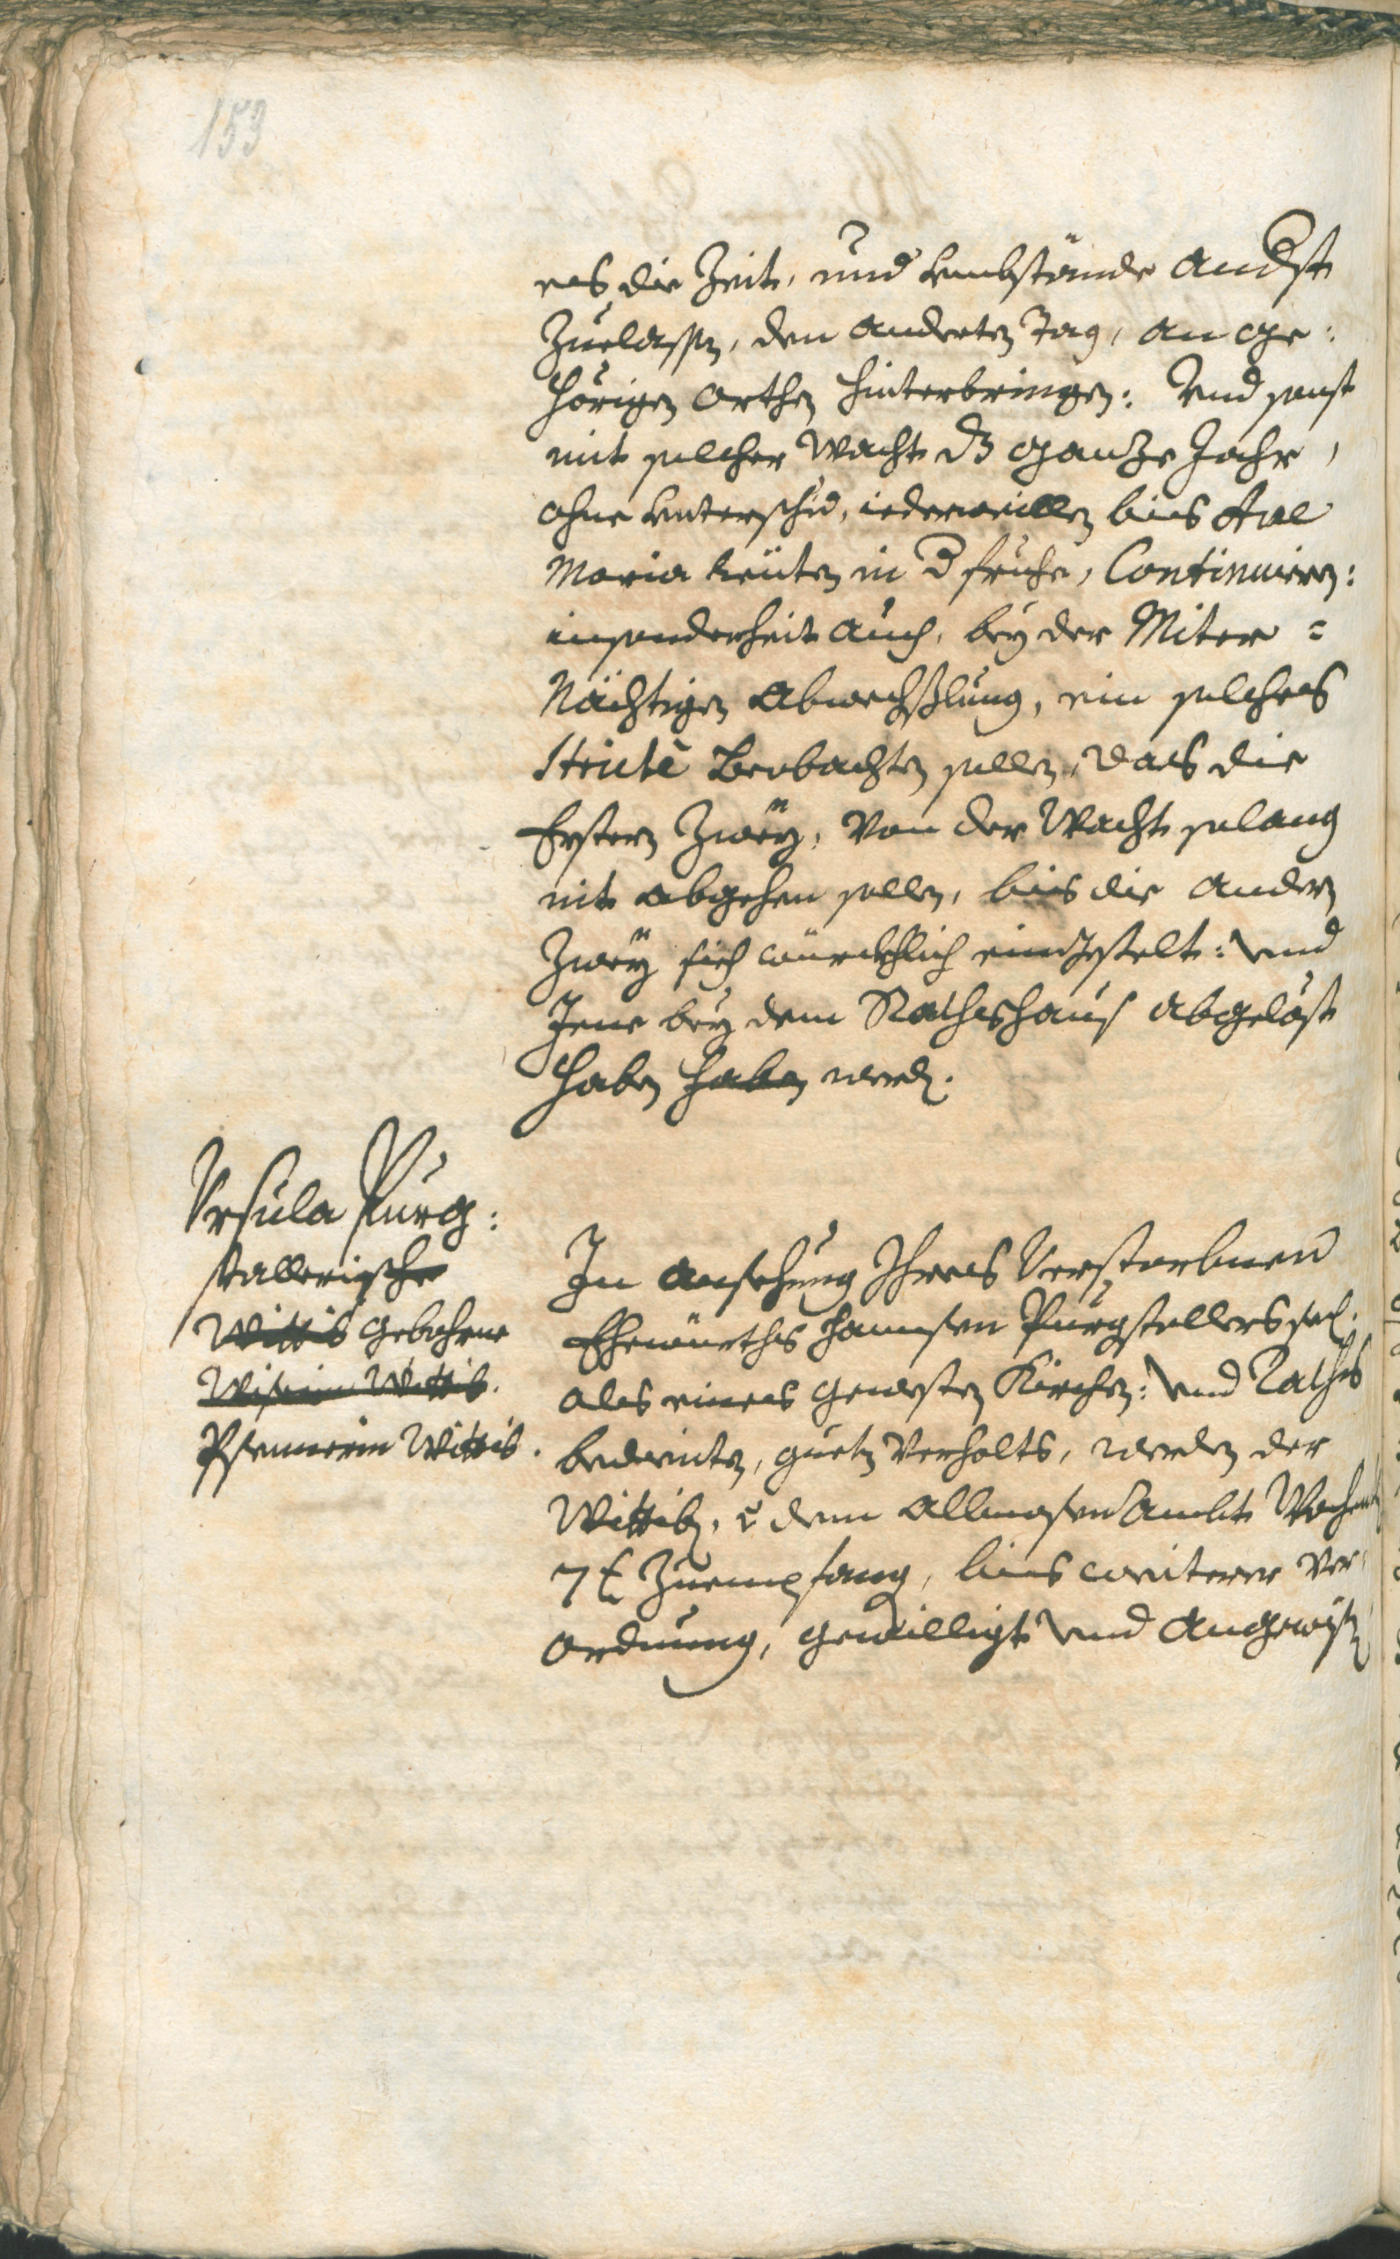 153
es die Zeit, und Umbstände anderst
Zuelassen, den anderten Tag, an ge:
hörigen orthen hinterbringen: Und sonst
mit solcher Wacht dz ganze Jahr,
ohne Unterschid, iederweillen bies Ave
Maria leuten in d fruhe, Continuiren:
insonderheit auch, bey der Miter =
Nächtigen abwechßlung, ein solches
stricté Beobachten sollen, dass die
Erstern Zwëy, Von der Wacht solang
nit abgehen sollen, bis die andern
Zwëy sich würckhlich eingestelt: und
Jene bey dem Rathshaus abgelöst
haben haben werd.
Ursula Purg:
stallerische
Wittib Gebohrne
Wisin Wittib.
Psennerin Wittib.
In ansehung Ihres Verstorbnen
Ehewürths Hannsen Purgstallers sel.
als eines gewesten Kirchen: und Raths
bedienten, guets Verhalts, werden der
Wittib, dem Allmosen Ambt Wochen
7 Zuempfang, bies weiterer Ver
ordnung, gewilligt und angewisen